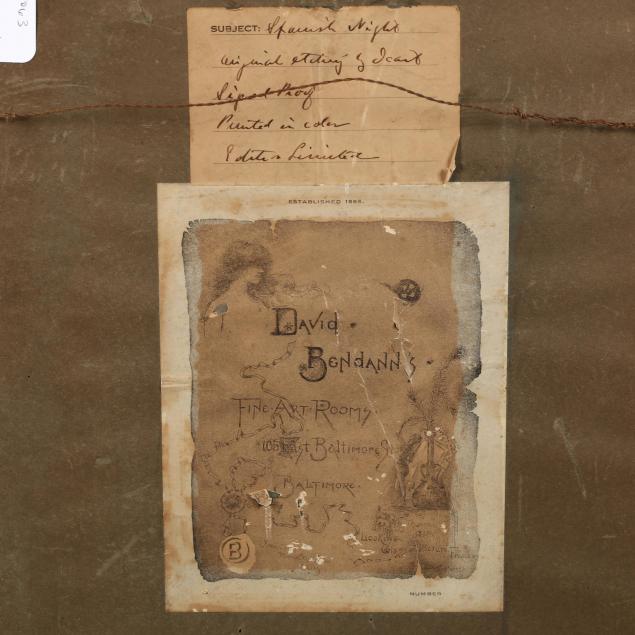 SUBJECT: Spanish Night
original etching by Icart
Signed Proof
Printed in color
Edition Limited
ESTABLISHED
DAVID
BENDANN'S
FINE·ART·ROOMS·
105 EAST BALTIMORE St
BALTIMORE·
B
LOOKING
NUMBER